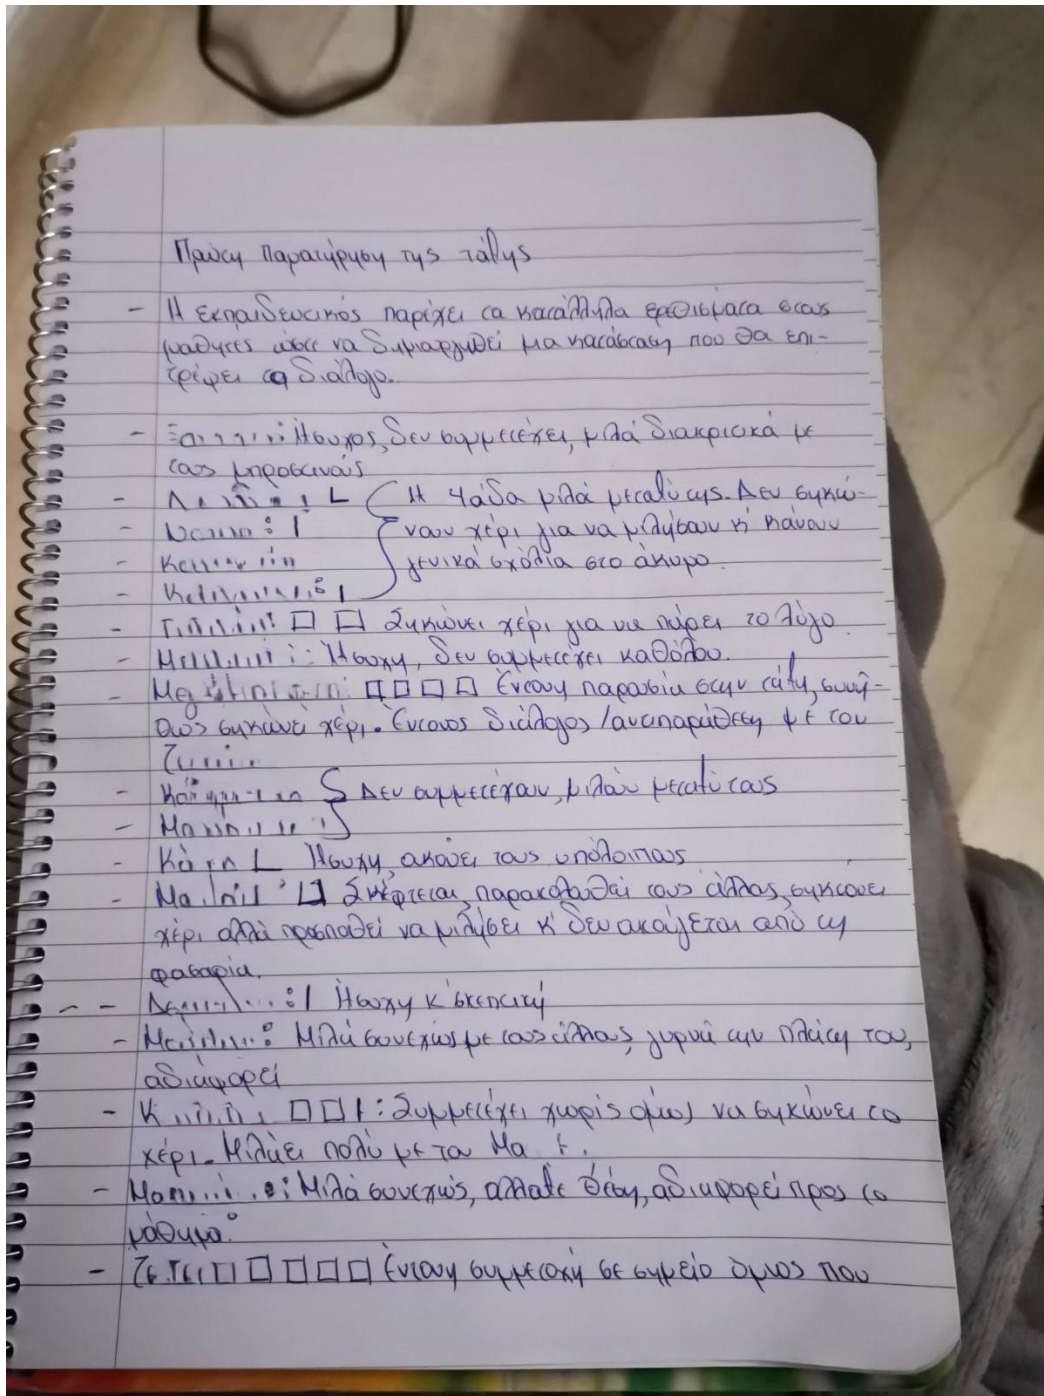 Πρώτη Παρατήρηση της τάξης
- Η εκπαιδευτικός παρέχει τα κατάλληλα ερεθίσματα στους
μαθητές ώστε να δημιουργηθεί μια κατάσταση που θα επι-
τρέψει το διάλογο.
- Ήσυχος, δεν συμμετέχει, μιλά διακριτικά με
τους μπροστινούς
- Η 4άδα μιλά μεταξύ της. Δεν σηκώ-
- νουν χέρι για να μιλήσουν κ' κάνουν
- γενικά σχόλια στο άκυρο.
-
- Σηκώνει χέρι για να πάρει το λόγο.
- Ήσυχη, δεν συμμετέχει καθόλου.
- Έντονη παρουσία στην τάξη, συνή-
θως σηκώνει χέρι. Έντονος διάλογος / αντιπαράθεση με τον
- Δεν συμμετέχουν, μιλούν μεταξύ τους
-
- Ήσυχη, ακούει τους υπόλοιπους
- Σκέφτεται, παρακολουθεί τους άλλους, σηκώνει
χέρι αλλά προσπαθεί να μιλήσει κ' δεν ακούγεται από τη
φασαρία.
- Ήσυχη κ' σκεπτική
- Μιλά συνεχώς με τους άλλους, γυρνά την πλάτη του,
αδιαφορεί
- : Συμμετέχει χωρίς όμως να σηκώνει το
χέρι. Μιλάει πολύ με τον
- : Μιλά συνεχώς, αλλάζει θέση, αδιαφορεί προς το
μάθημα.
- Έντονη συμμετοχή σε σημείο όμως που